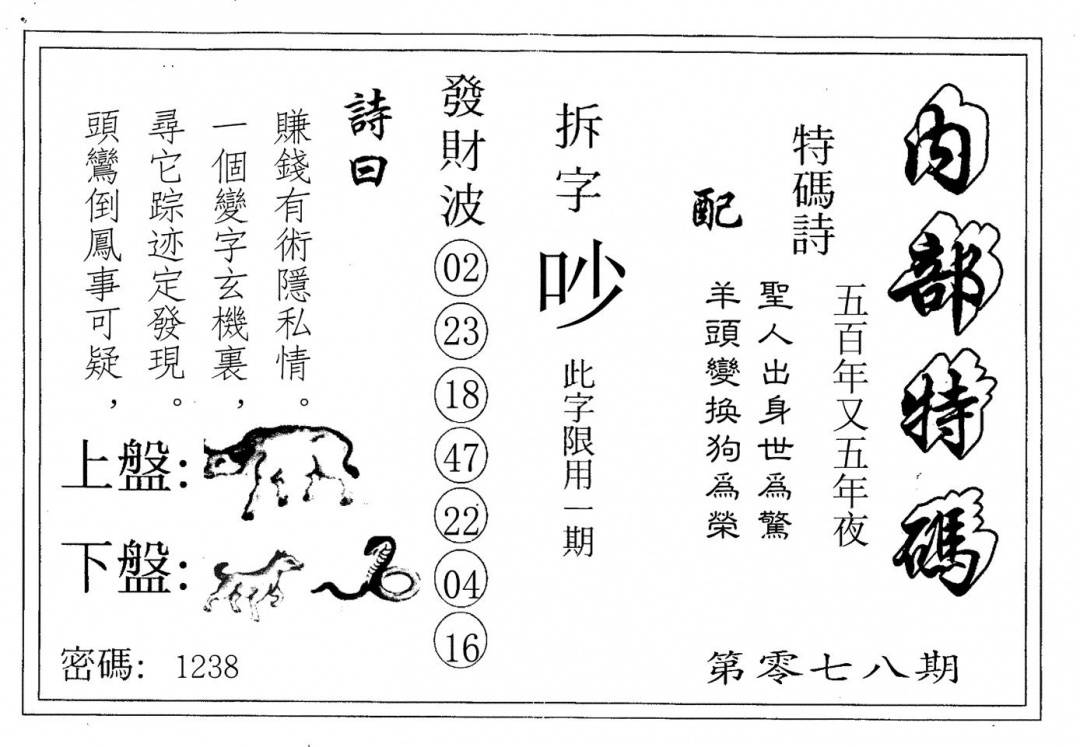 內部特碼
第零七八期
特碼詩
五百年又五年夜
配
聖人出身世爲驚
羊頭變換狗爲榮
拆字
吵
此字限用一期
發財波
02
23
18
47
22
04
16
詩曰
賺錢有術隱私情。
一個變字玄機裏，
尋它踪迹定發現。
頭鸞倒鳳事可疑，
上盤：
下盤：
密碼：1238